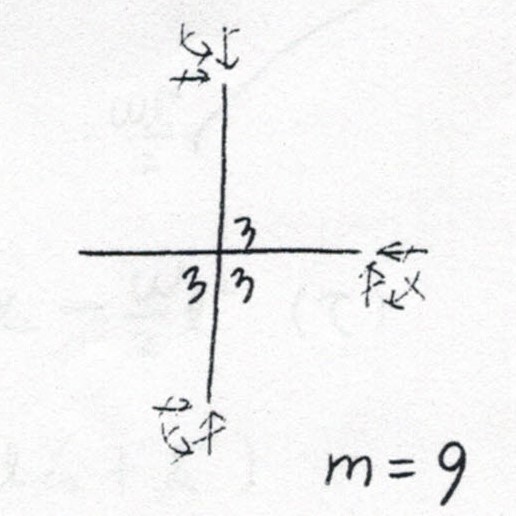 3
3 3
m = 9